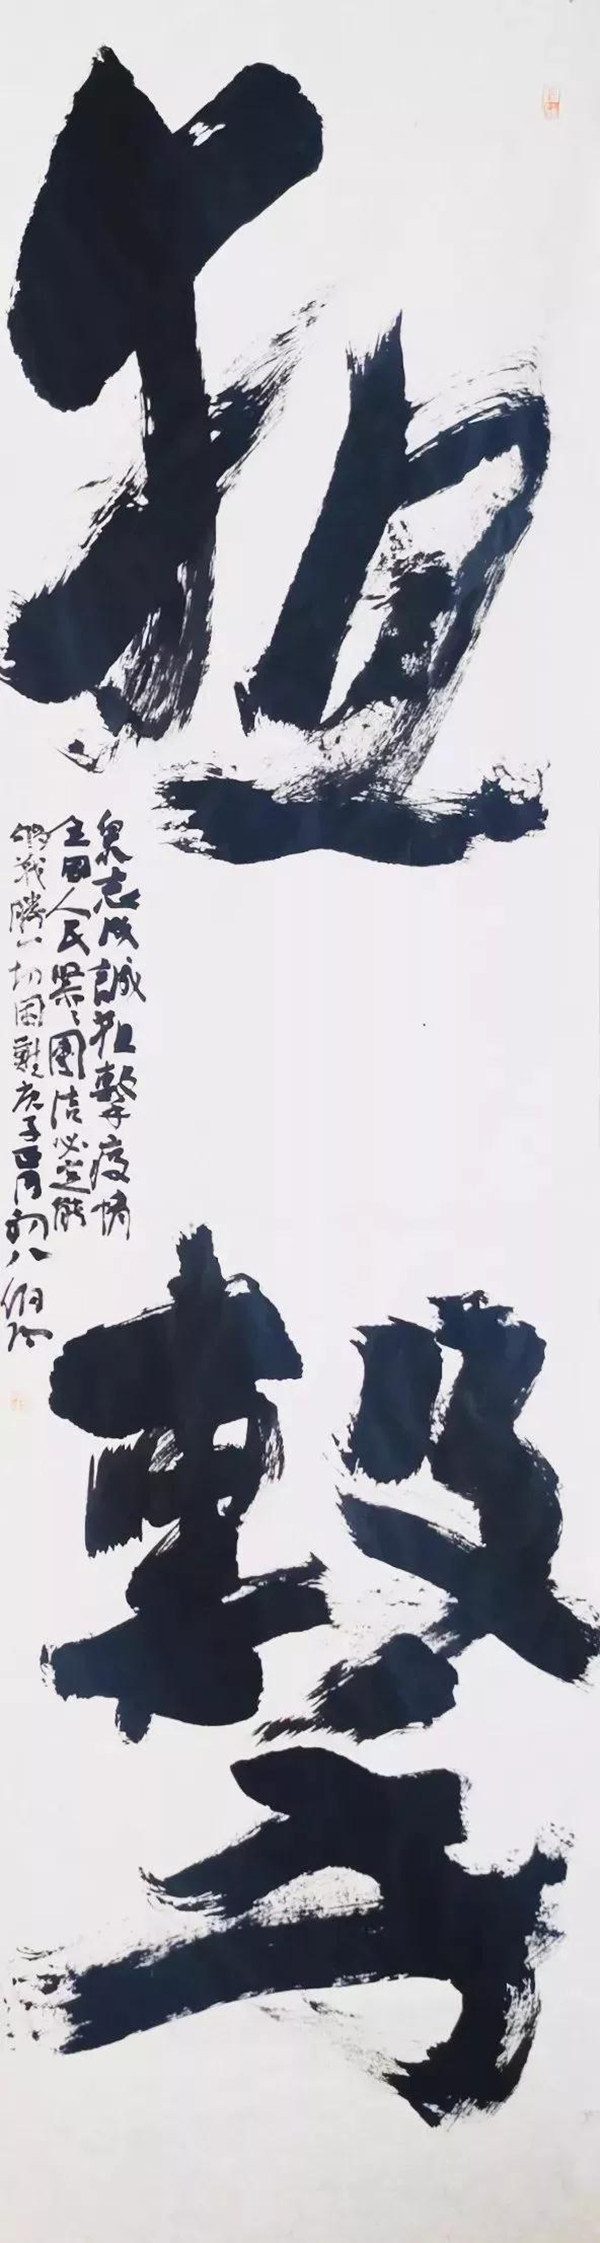 狙擊
眾志成誠狙擊疫情
全國人民緊々團结必定能
夠戰勝一切困難庚子正月初八